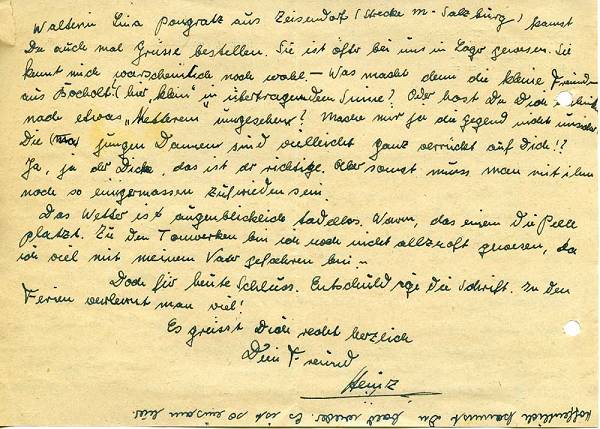 Walterin Lina Pongratz aus Zeisendorf (Strecke M-Salzburg) kannst
Du auch mal Grüsse bestellen. Sie ist öfter bei uns im Lager gewesen. Sie
kennt mich warscheinlich noch wohl. – Was macht denn die kleine Freundin
aus Bocholt? (hier „klein" in übertragendem Sinne)? Oder hast Du Dich
nach etwas „Netterem" umgesehen? Mache mir ja die Gegend nicht unsicher.
Die jungen Damen sind vielleicht ganz verrückt auf Dich!?
Ja, ja der Dicke, das ist der richtige. Aber sonst muss man mit ihm
noch so einigermassen zufrieden sein.
Das Wetter ist augenblicklich tadellos. Warm, das einem die Pelle
platzt. Zu den Tonwerken bin ich noch nicht allzuoft gewesen, da
ich viel mit meinem Vater gefahren bin. –
Doch für heute Schluss. Entschuldige die Schrift. In den
Ferien verlernt man viel!
Es grüsst Dich recht herzlich
Dein Freund
Heinz
Hoffentlich kommst Du bald wieder. Es ist so einsam hier.